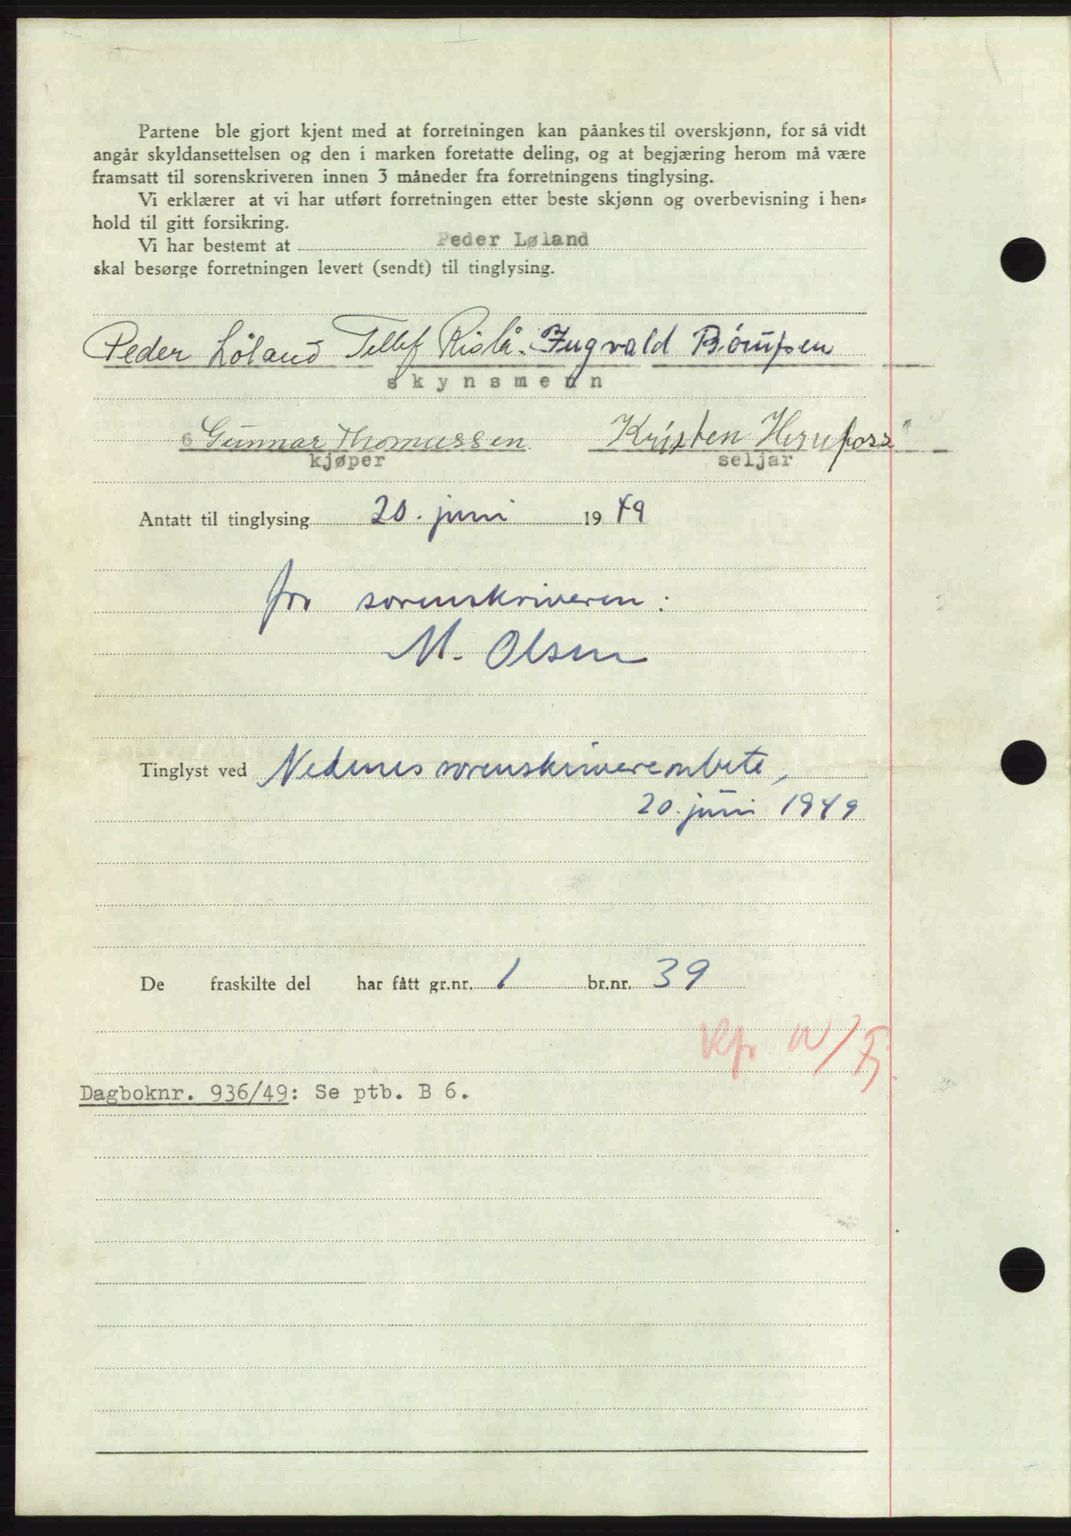 Partene ble gjort kjent med at forretningen kan påankes til overskjønn, for så vidt
angår skyldansettelsen og den i marken foretatte deling, og at begjæring herom må være
framsatt til sorenskriveren innen 3 måneder fra forretningens tinglysing.
Vi erklærer at vi har utført forretningen etter beste skjønn og overbevisning i hen-
hold til gitt forsikring.
Vi har bestemt at Peder Løland
skal besørge forretningen levert (sendt) til tinglysing.
Peder Löland Tellef Rislå. Ingvald
skynsmenn
Gunnar Thomassen Kristen
kjøper seljar
Antatt til tinglysing 20. juni 1949
for sorenskriveren:
M. Olsen
Tinglyst ved Nedenes sorenskriverembete,
20. juni 1949
De fraskilte del har fått gr.nr. 1 br.nr. 39
Dagboknr. 936/49: Se ptb. B 6.